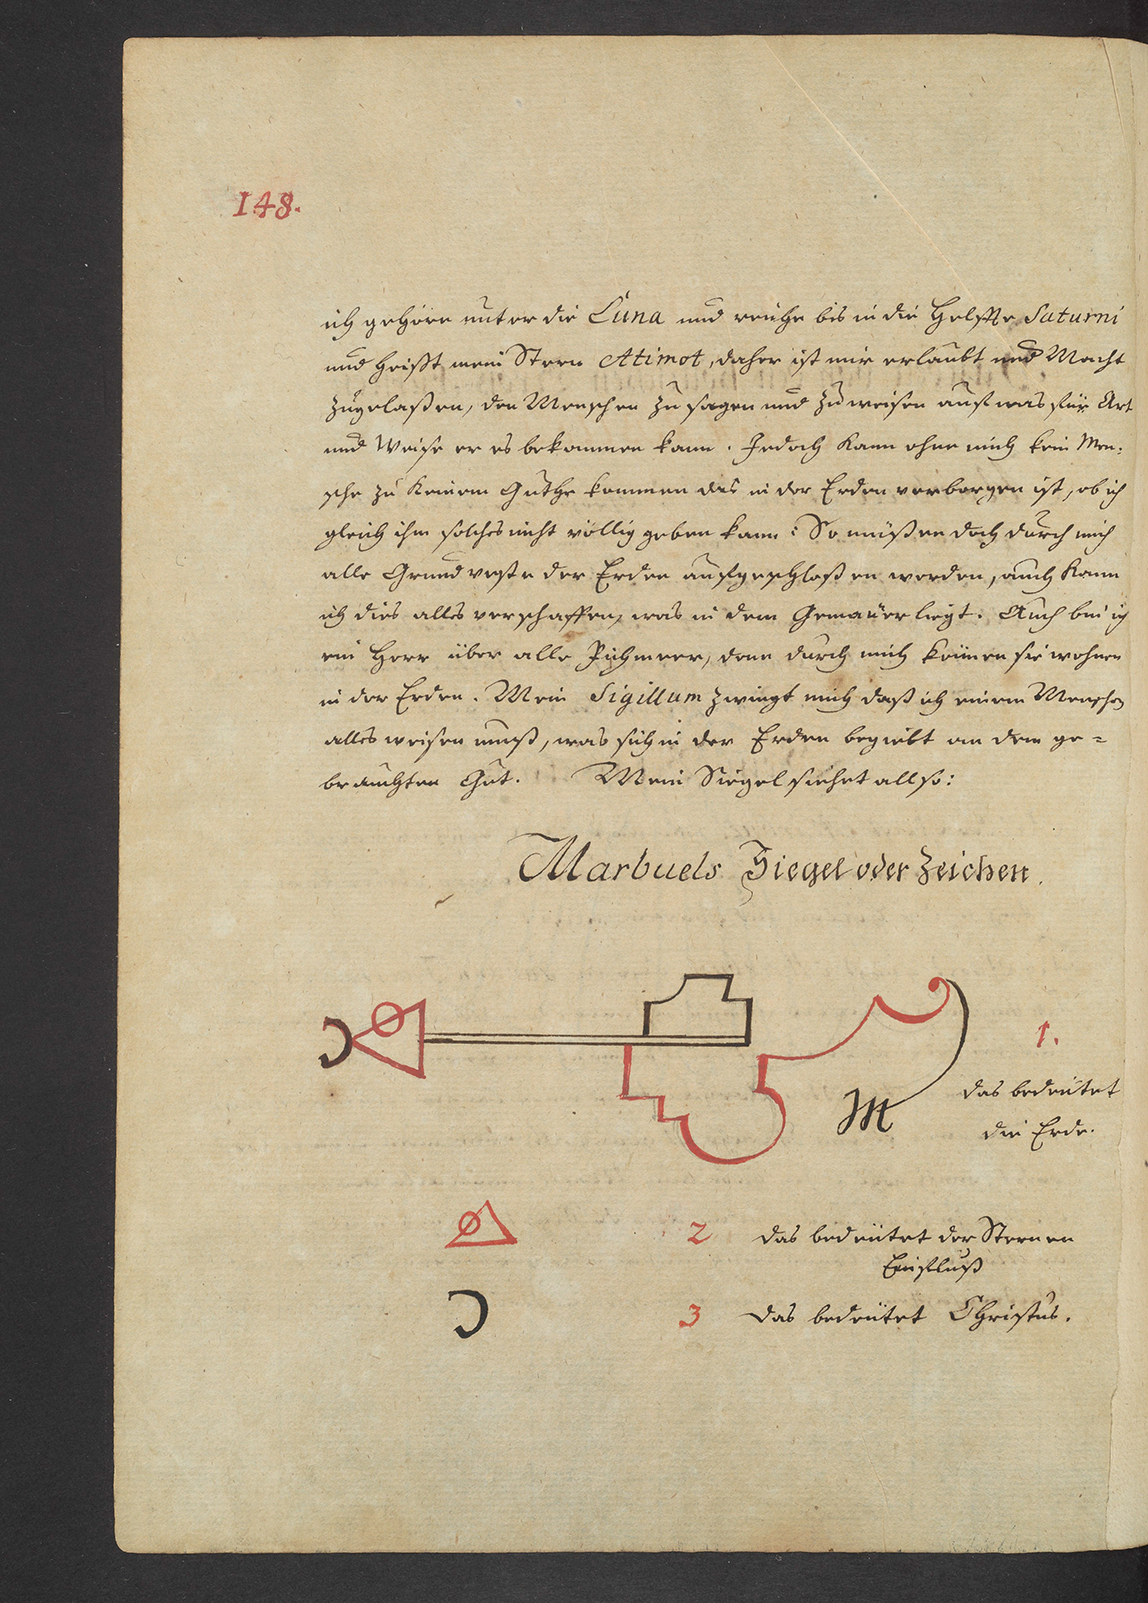 148.
ich gehöre unter die Luna und reiche bis in die Helffte Saturni
und heißt mein Stern Atimot, daher ist mir erlaubt und Macht
zugelaßen, den Menschen zu sagen und zu weisen auf was für Art
und Weise er es bekommen kann. Jedoch kann ohne mich kein Men:
sche zu keinem Guthe kommen das in der Erden verborgen ist, ob ich
gleich ihm solches nicht völlig geben kann: So müßen doch durch mich
alle Grundveste der Erden aufgeschloßen werden, auch kann
ich dies alles verschaffen, was in dem Gemäuer liegt. Auch bin ich
ein Herr über alle , denn durch mich können sie wohnen
in der Erden. Mein Sigillum zwingt mich daß ich einem Menschen
alles weisen muß, was sich in der Erden begiebt an dem ge=
brauchten Gut. Mein Siegel siehet allso:
Marbuels Siegel oder Zeichen.
M
1.
das bedeutet
die Erde.
2 das bedeutet der Sternen
Einfluß
3 das bedeutet Christus.